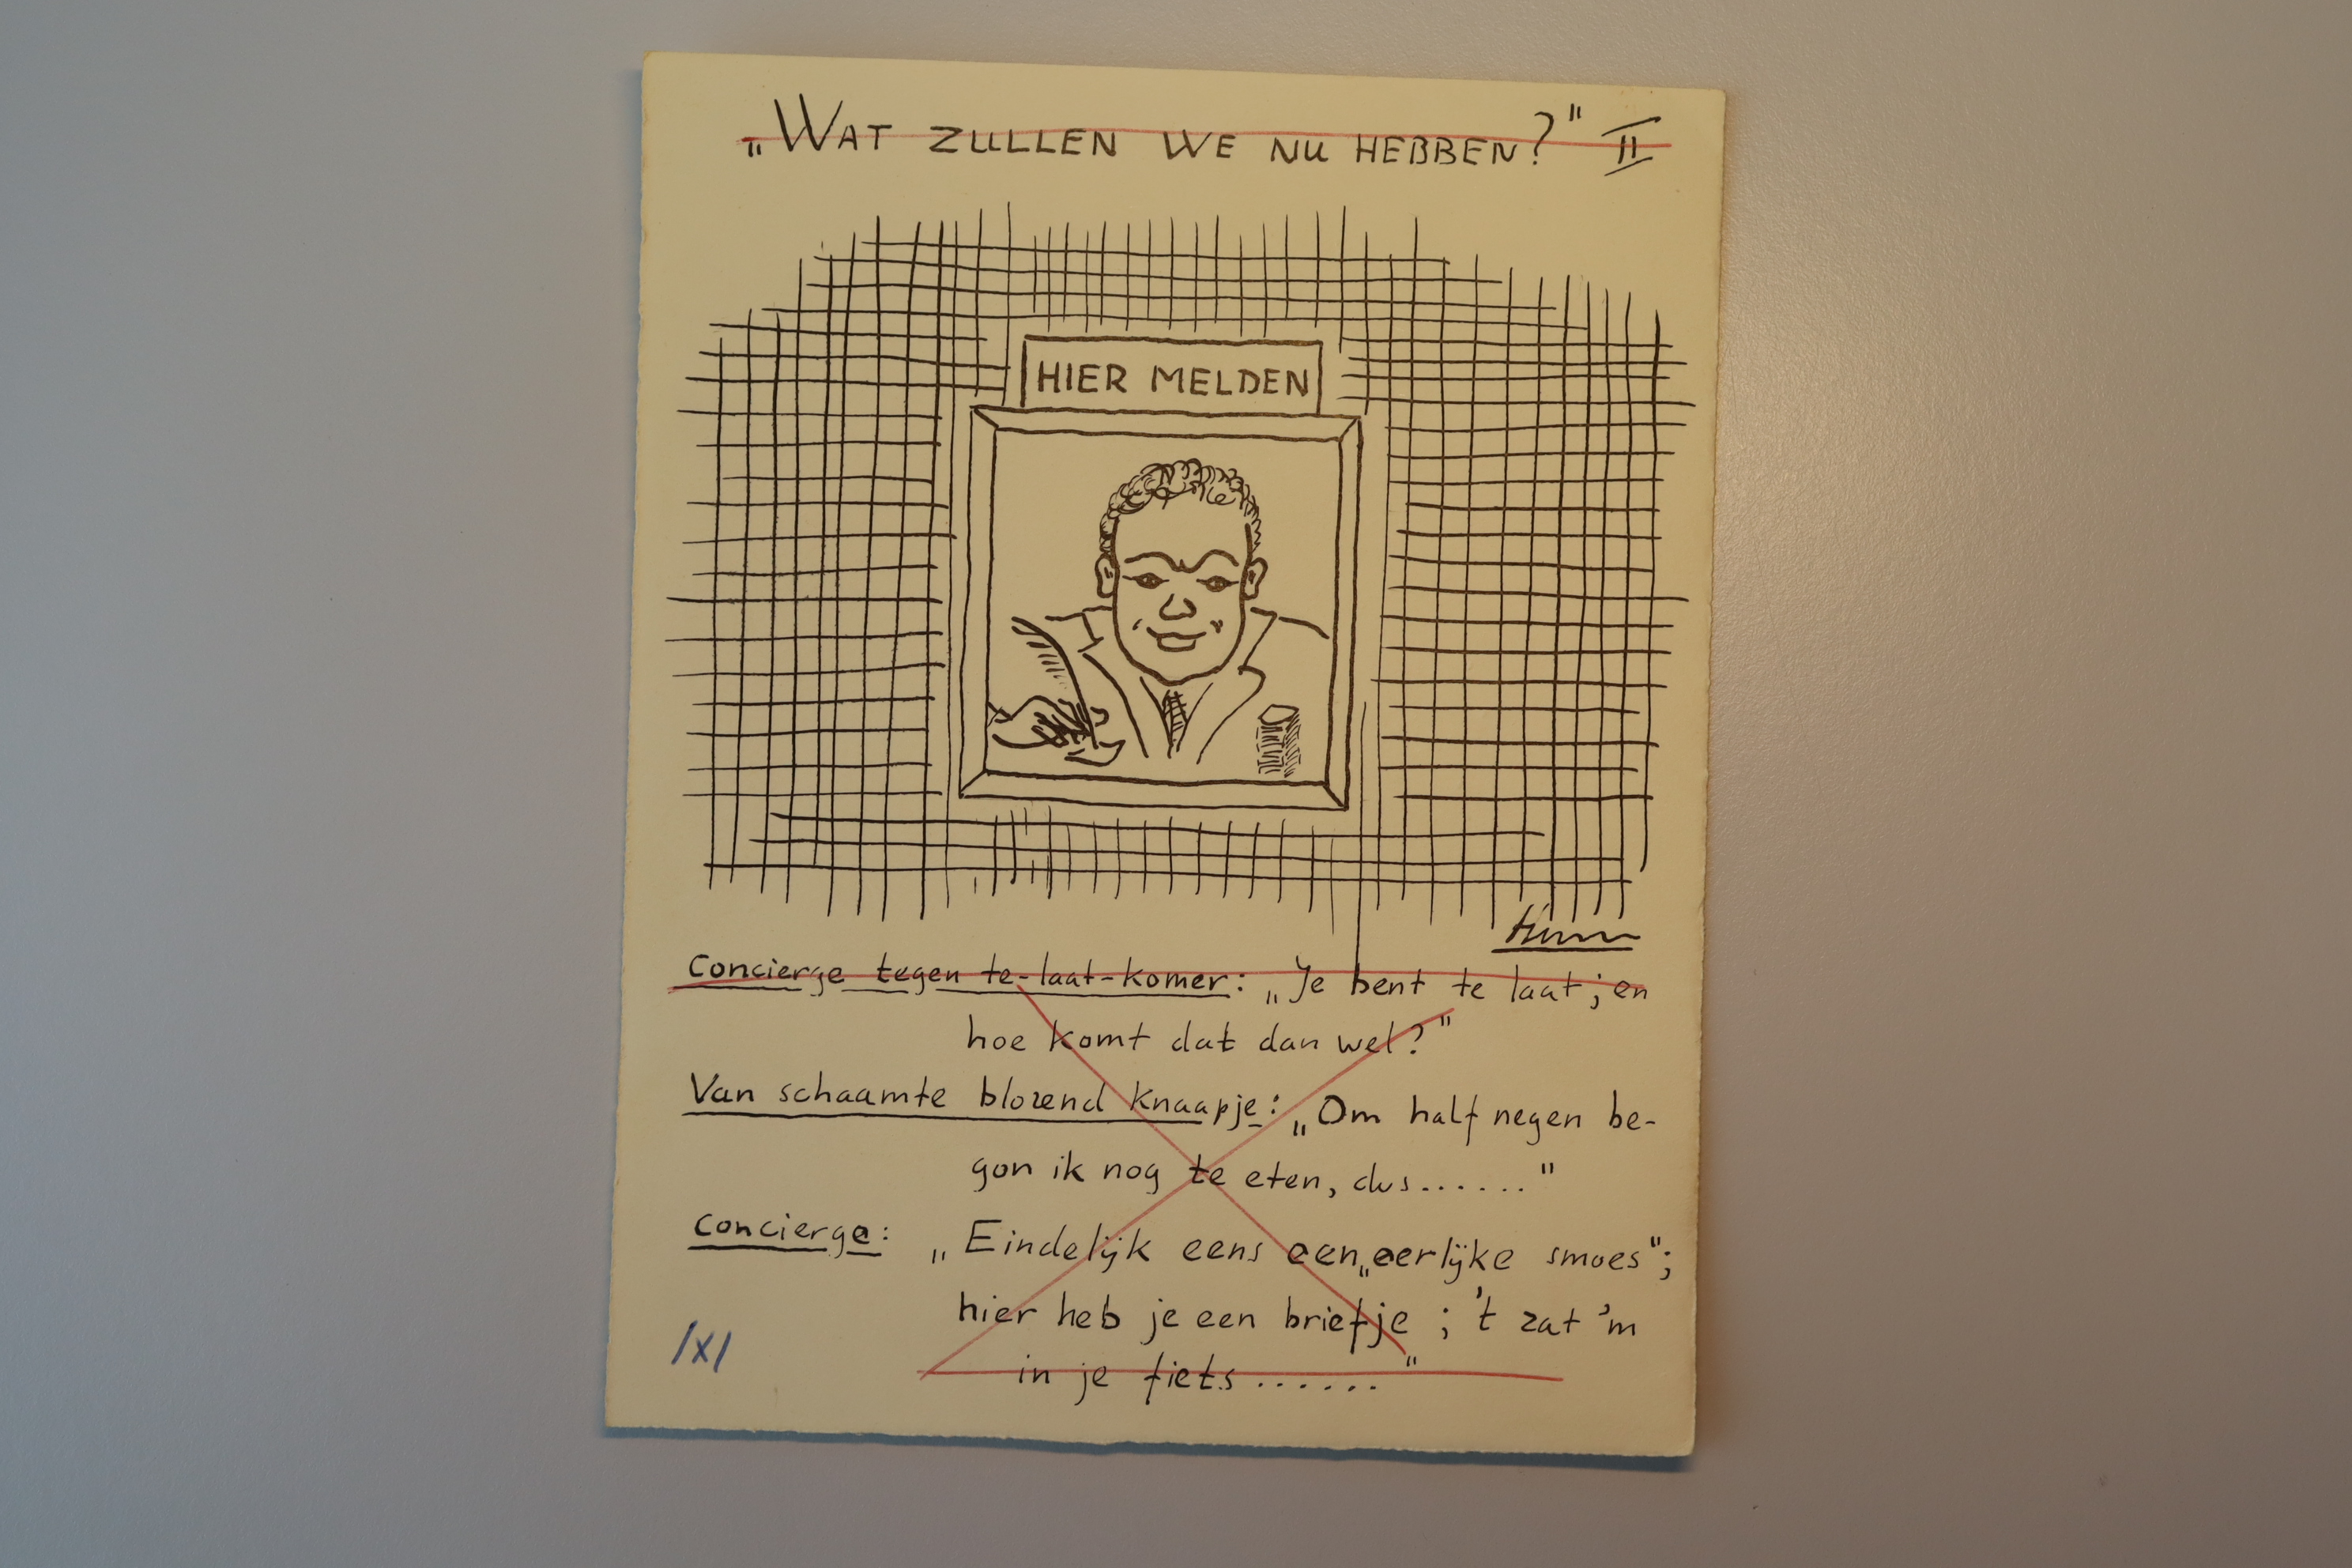 „WAT ZULLEN WE NU HEBBEN?" II
HIER MELDEN
Concierge tegen te-laat-komer: „Je bent te laat; en
hoe komt dat dan wel?"
Van schaamte blozend knaapje: „Om half negen be-
gon ik nog te eten, dus......"
Concierge: „Eindelijk eens een „eerlijke smoes";
hier heb je een briefje ; 't zat 'm
in je fiets ......"
1x1